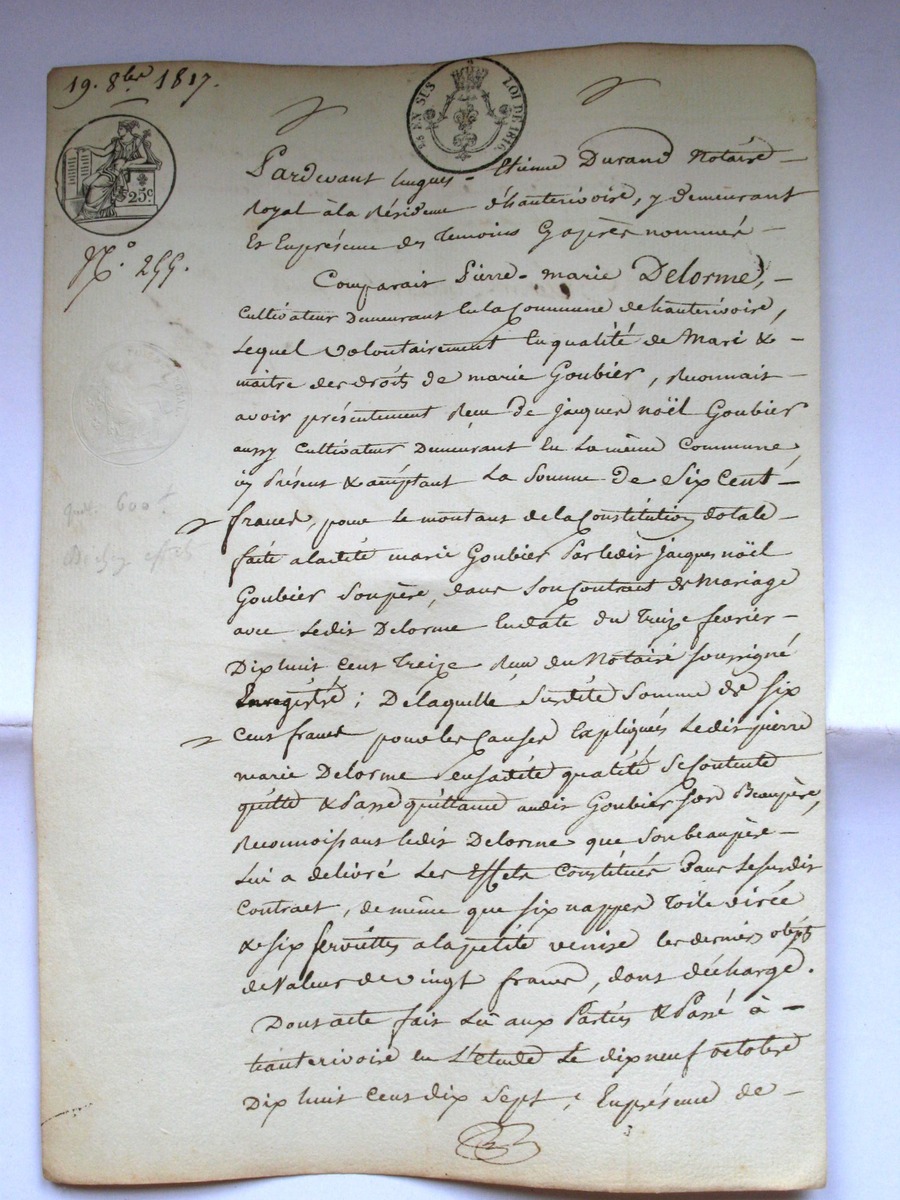 19. 8bre 1817.
25 EN SUS LOI DE 1816.
25c
N.o 255.
600f
Pardevant hugues - Etienne Durand Notaire
Royal à la Résidence d'hauterivoire, y demeurant
Et En présence des Temoins Cy après nommés
Comparait Pierre - marie Delorme,
Cultivateur Demeurant En la Commune de hauterivoire,
Lequel volontairement En qualité de Mari &
maitre des droits de marie Goubier, Reconnait
avoir présentement Recu de jacques noël Goubier
aussy Cultivateur Demeurant En La même Commune,
icy Présent & acceptant La Somme de Six Cent
francs, pour le montant de la Constitution dotale
faite a ladite marie Goubier Par ledit jacques noël
Goubier Son père, dans Son Contrat de Mariage
avec Ledit Delorme En date du Treize fevrier
Dix huit Cent Treize Recu du Notaire soussigné
Enregistré ; De laquelle Susdite Somme de Six
Cent francs pour les Causes Expliqués Ledit pierre
marie Delorme en sadite qualité Se Contente
quitte & Passe quittance audit Goubier Son Beaupère,
Reconnoissant ledit Delorme que Son beaupère
Lui a delivré Les Effets Constitués Dans Le susdit
Contract, de même que six nappes Toile virée
& six serviettes a la petite venise les derniers objets
de Valeur de vingt francs, dont décharge.
Dont acte fait Lu aux Parties & Passé à
hauterivoire en L'etude Le dix neuf octobre
Dix huit Cent dix Sept, En présence de